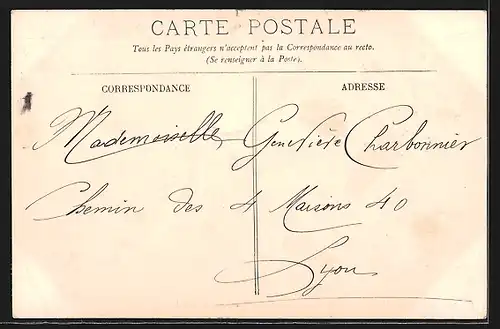 CARTE POSTALE
Tous les Pays étrangers n'acceptent pas la Correspondance au recto.
(Se renseigner à la Poste).
CORRESPONDANCE
ADRESSE
Mademoiselle Geneviève Charbonnier
Chemin des 4 Maisons 40
Lyon